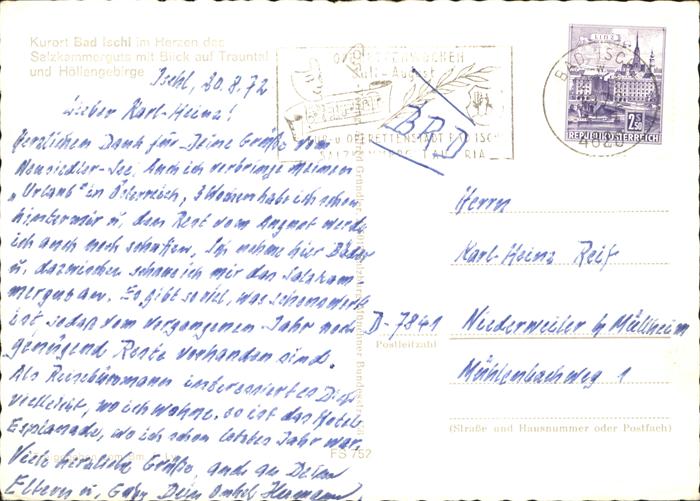 Kurort Bad Ischl im Herzen des
Salzkammerguts mit Blick auf Trauntal
und Höllengebirge
Ischl, 20.8.72
Lieber Karl-Heinz!
Herzlichen Dank für Deine Grüße vom
Neusiedler-See. Auch ich verbringe meinen
"Urlaub" in Österreich, 3 Wochen habe ich schon
hinter mir u. den Rest vom August werde
ich auch noch schaffen. Ich nehme hier Bäder
u. dazwischen schaue ich mir das Salzkam
mergut an. Es gibt so viel, was sehenswert
ist, sodaß vom vergangenen Jahr noch
genügend Reste vorhanden sind.
Als interessiert es Dich
vielleicht, wo ich wohne. so ist das Hotel
Esplanade, wo ich schon letztes Jahr war.
Viele herzliche Grüße, auch an Deine
Eltern u. Gaby Dein Onkel Hermann
BRD
LINZ
REPUBLIK ÖSTERREICH
2.50
BAD ISCHL
4820
Juli - August
OPERETTENSTADT BAD ISCHL
Herrn
Karl-Heinz Reif
D-7841 Niederweiler b/ Müllheim
Postleitzahl
Mühlenbachweg 1
(Straße und Hausnummer oder Postfach)
FS 752